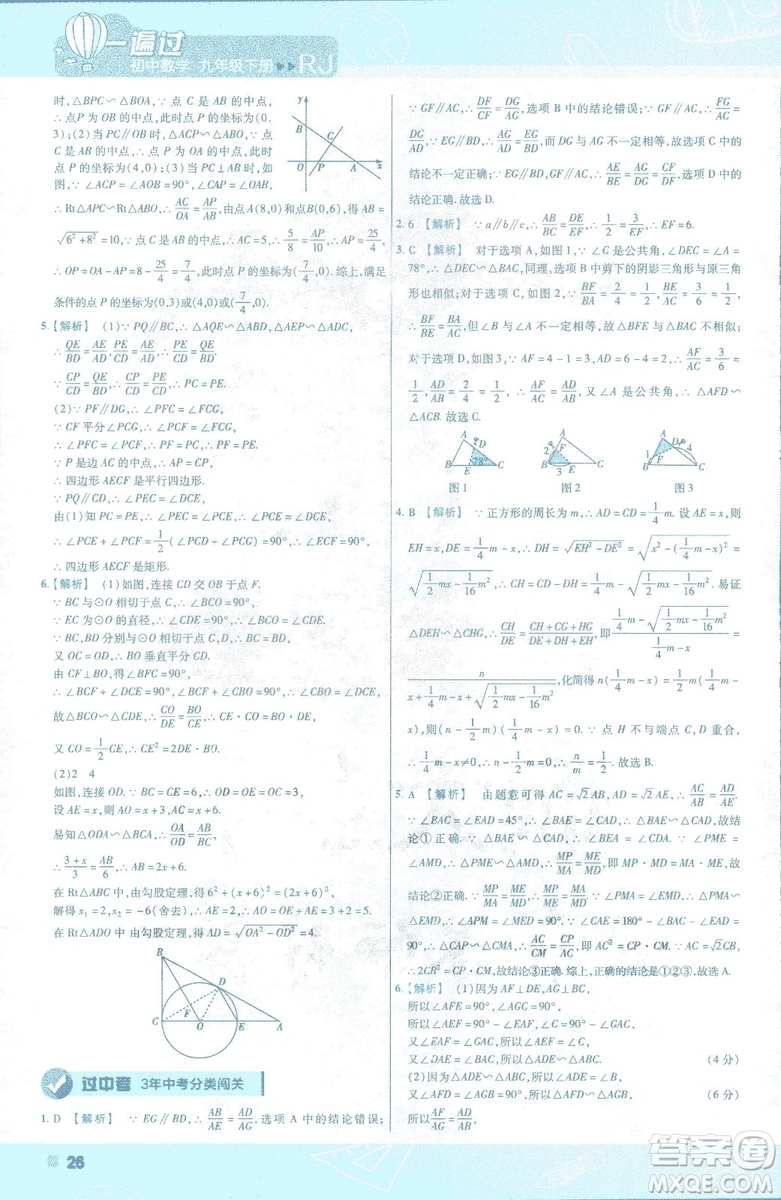 一遍过
初中数学 九年级下册 ▸▸ RJ
时,△BPC∽△BOA,∵ 点 C 是 AB 的中点,
∴ 点 P 为 OB 的中点,此时点 P 的坐标为(0,
3);(2)当 PC∥OB 时,△APC∽△AOB,∵ 点
C 是 AB 的中点,∴ 点 P 为 OA 的中点,此时点
P 的坐标为(4,0);(3)当 PC⊥AB 时,如图,
∵ ∠ACP = ∠AOB = 90°,∠CAP = ∠OAB,
∴ Rt△APC∽Rt△ABO,∴ AC/OA = AP/AB,由点A(8,0)和点B(0,6),得AB =
√(6²+8²) = 10,∵ 点 C 是 AB 的中点,∴ AC = 5,∴ 5/8 = AP/10,∴ AP = 25/4,
∴ OP = OA − AP = 8 − 25/4 = 7/4,此时点 P 的坐标为(7/4,0).综上,满足
条件的点 P 的坐标为(0,3)或(4,0)或(7/4,0).
y B C O P A x
5.【解析】 (1)∵ PQ∥BC,∴ △AQE∽△ABD,△AEP∽△ADC,
∴ QE/BD = AE/AD, PE/CD = AE/AD,∴ QE/BD = PE/CD.
∵ CP/CD = PE/BD,∴ CP/CD = PE/CD,∴ PE = PC.
(2)∵ PF∥DG,∴ ∠PFC = ∠FCG,
∵ CF 平分∠PCG,∴ ∠PCF = ∠FCG,
∴ ∠PFC = ∠PCF,∴ PF = PC,∴ PF = PE.
∵ P 是边 AC 的中点,∴ AP = PC,
∴ 四边形 AECF 是平行四边形.
∵ PQ∥CD,∴ ∠PEC = ∠DCE,
由(1)知 PC = PE,∴ ∠PEC = ∠PCE,
∴ ∠PCE + ∠PCF = 1/2(∠PCD + ∠PCG) = 90°,
∴ 四边形 AECF 是矩形.
6.【解析】 (1)如图,连接 CD 交 OB 于点 F.
∵ BC 与⊙O 相切于点 C,∴ ∠BCO = 90°,
∵ EC 为⊙O 的直径,∴ ∠CDE = 90°,
∵ BD,BC 分别与⊙O 相切于点 D,C,∴ BC = BD,
∵ OC = OD,∴ BO 垂直平分 CD.
由 CF⊥BO,得∠BFC = 90°,
∴ ∠CBO = ∠BCD = 90°,又∠DCE + ∠BCD = 90°,∴ ∠CBO = ∠DCE,
故△BCO∽△CDE,得 CO/DE = BO/CE,
又 CO = 1/2 CE,∴ CE² = 2DE·BO.
(2)2 4
如图,连接 OD,∵ BC = CE = 6,∴ OD = OE = OC = 3,
设 AE = x.
易知△AOD∽△ABC,∴ OA/AB = OD/BC,
∴ (3+x)/AB = 3/6,∴ AB = 6 + 2x,
在 Rt△ABC 中,由勾股定理,得6² + (x+6)² = (6+2x)²,
解得 x₁ = 2,x₂ = −6(舍去),∴ AE = 2,∴ AO = OE + AE = 5,
在 Rt△ADO 中,由勾股定理,得 AD = √(OA² − OD²) = 4.
B D F C O E A
过中考 3年中考分类闯关
1. D 【解析】 ∵ EG∥BD,∴ AB/AE = AD/EG,选项 A 中的结论错误;
∵ GF∥AC,∴ DF/CF = DG/AG,选项 B 中的结论错误;∵ GF∥AC,∴ FG/AC =
DG/AD,∵ EG∥BD,∴ AE/BE = AG/DG,而 DG 与 AG 不一定相等,故选项 C 中的
结论不一定正确;∵ EG∥BD,GF∥AC,∴ AE/BE = AG/DG = CF/DF,选项 D 中的
结论正确.故选 D.
2. 6 【解析】 ∵ a∥b∥c,∴ AB/BC = DE/EF,∴ 1/2 = 3/EF,∴ EF = 6.
3. C 【解析】 对于选项 A,如图1,∵ ∠C 是公共角,∠CED = ∠A =
78°,∴ △CED∽△CAB,同理,选项 B 中剪下的阴影三角形与原三角
形也相似;对于选项 C,如图 2,∵ BF/BA = 2/4 = 1/2, BE/AC = 3/6 = 1/2,
∴ BF/BA = BE/AC,但∠B 与∠A 不一定相等,故△BFE 与△ABC 不一定相似;
对于选项 D,如图 3,∵ AF = 4 − 1 = 3,AD = 6 − 4 = 2,∴ AF/AC = 3/6 =
1/2, AD/AB = 2/4 = 1/2,∴ AF/AC = AD/AB,又∠A 是公共角,∴ △AFD∽
△ACB.故选 C.
A D B 78° E C 图1
A 2 F B 3 E C 图2
A D 4 1 F B C 图3
4. B 【解析】 ∵ 正方形的周长为 m,∴ AD = CD = 1/4 m.设 AE = x,则
DE = 1/4 m − x,EH = x,∴ DH = √(EH² − DE²) = √(x² − (1/4 m − x)²) =
√(1/2 m − 1/16 m²),∴ CH = CD − DH = 1/4 m − √(1/2 m − 1/16 m²).易证
△DEH∽△CHG,∴ CH/DE = (CH+CG+HG)/(DE+DH+EH),即 (1/4 m − √(1/2 m − 1/16 m²))/(1/4 m − x) =
n/(x + 1/4 m − x + √(1/4 m − 1/16 m²)),化简得 1/2 m(1/4 m − x) = n(1/4 m −
x),则(n − 1/2 m)(1/4 m − x) = 0.∵ 点 H 不与端点 C,D 重合,
∴ 1/4 m − x ≠ 0,∴ n − 1/2 m = 0,即 n = 1/2 m,∴ n/m = 1/2.故选 B.
5. A 【解析】 由题意可得 AC = √2 AB,AD = √2 AE,∴ AC/AB = AD/AE.
∵ ∠BAC = ∠EAD = 45°,∴ ∠BAE = ∠CAD,∴ △BAE∽△CAD,故结
论①正确.∵ △BAE∽△CAD,∴ ∠BEA = ∠CDA,又∵ ∠PME =
∠AMD,∴ △PME∽△AMD,∴ MP/MA = ME/MD,即 MP·MD = MA·ME,故
结论②正确.∵ MP/MA = ME/MD,∴ MP/ME = MA/MD,又∠PMA = ∠EMD,∴ △PMA∽
△EMD,∴ ∠APM = ∠MED = 90°.∵ ∠CAE = 180° − ∠BAC − ∠EAD =
90°,∴ △CAP∽△CMA,∴ AC/CM = CP/AC,∴ AC² = CP·CM.∵ AC = √2CB,∴
2CB² = CP·CM,故结论③正确.综上,正确的结论是①②③.故选 A.
6.【解析】 (1)因为 AF⊥DE,AG⊥BC,
所以∠AFE = 90°,∠AGC = 90°,
所以∠AEF = 90° − ∠EAF,∠C = 90° − ∠GAC,
又∠EAF = ∠GAC,所以∠AEF = ∠C,
又∠DAE = ∠BAC,所以△ADE∽△ABC. (4 分)
(2)因为△ADE∽△ABC,所以∠ADE = ∠B,
又∠AFD = ∠AGB = 90°,所以△AFD∽△AGB, (6 分)
所以 AF/AG = AD/AB,
26
答案圈
MXQE.COM